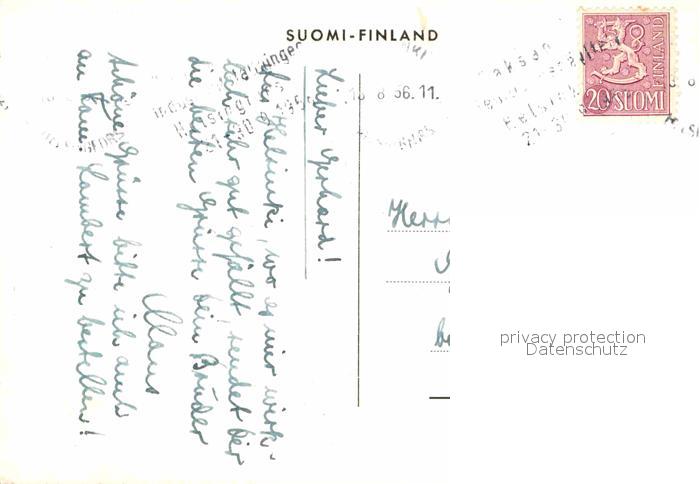 SUOMI-FINLAND
18.8.56.11.
20 SUOMI
FINLAND
Lieber Gerhard!
Aus Helsinki, wo es mir wirk-
lich sehr gut gefällt, sendet Dir
die besten Grüsse dein Bruder
Klaus
Schöne Grüsse bitte ich auch
an Fam. Lambert zu bestellen!
Herrn
privacy protection
Datenschutz